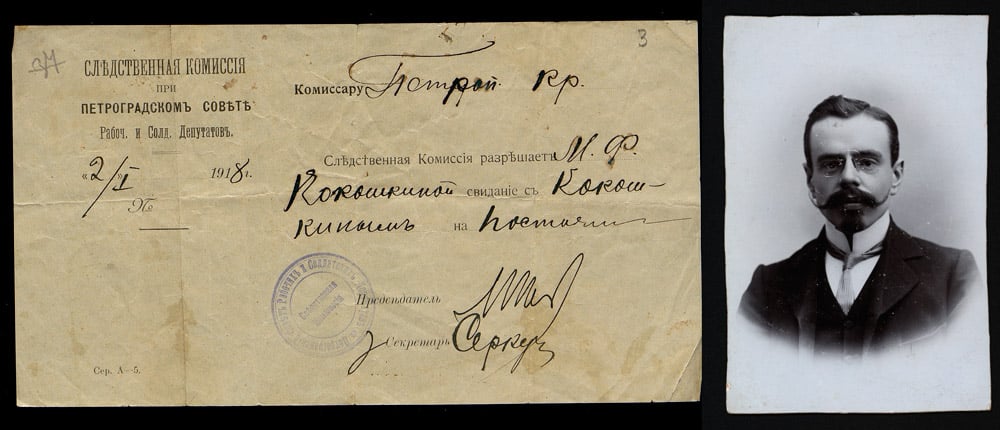 37
3
СЛѢДСТВЕННАЯ КОМИССІЯ
ПРИ
ПЕТРОГРАДСКОМЪ СОВѢТѢ
Рабоч. и Солд. Депутатовъ.
„2/I 1918 г.
№
Комиссару Петроп. Кр.
Слѣдственная Комиссія разрѣшаетъ М. Ф.
Кокошкиной свиданіе съ Кокош-
кинымъ на
Предсѣдатель
Секретарь
Слѣдственная
Комиссія
Сер. А—5.